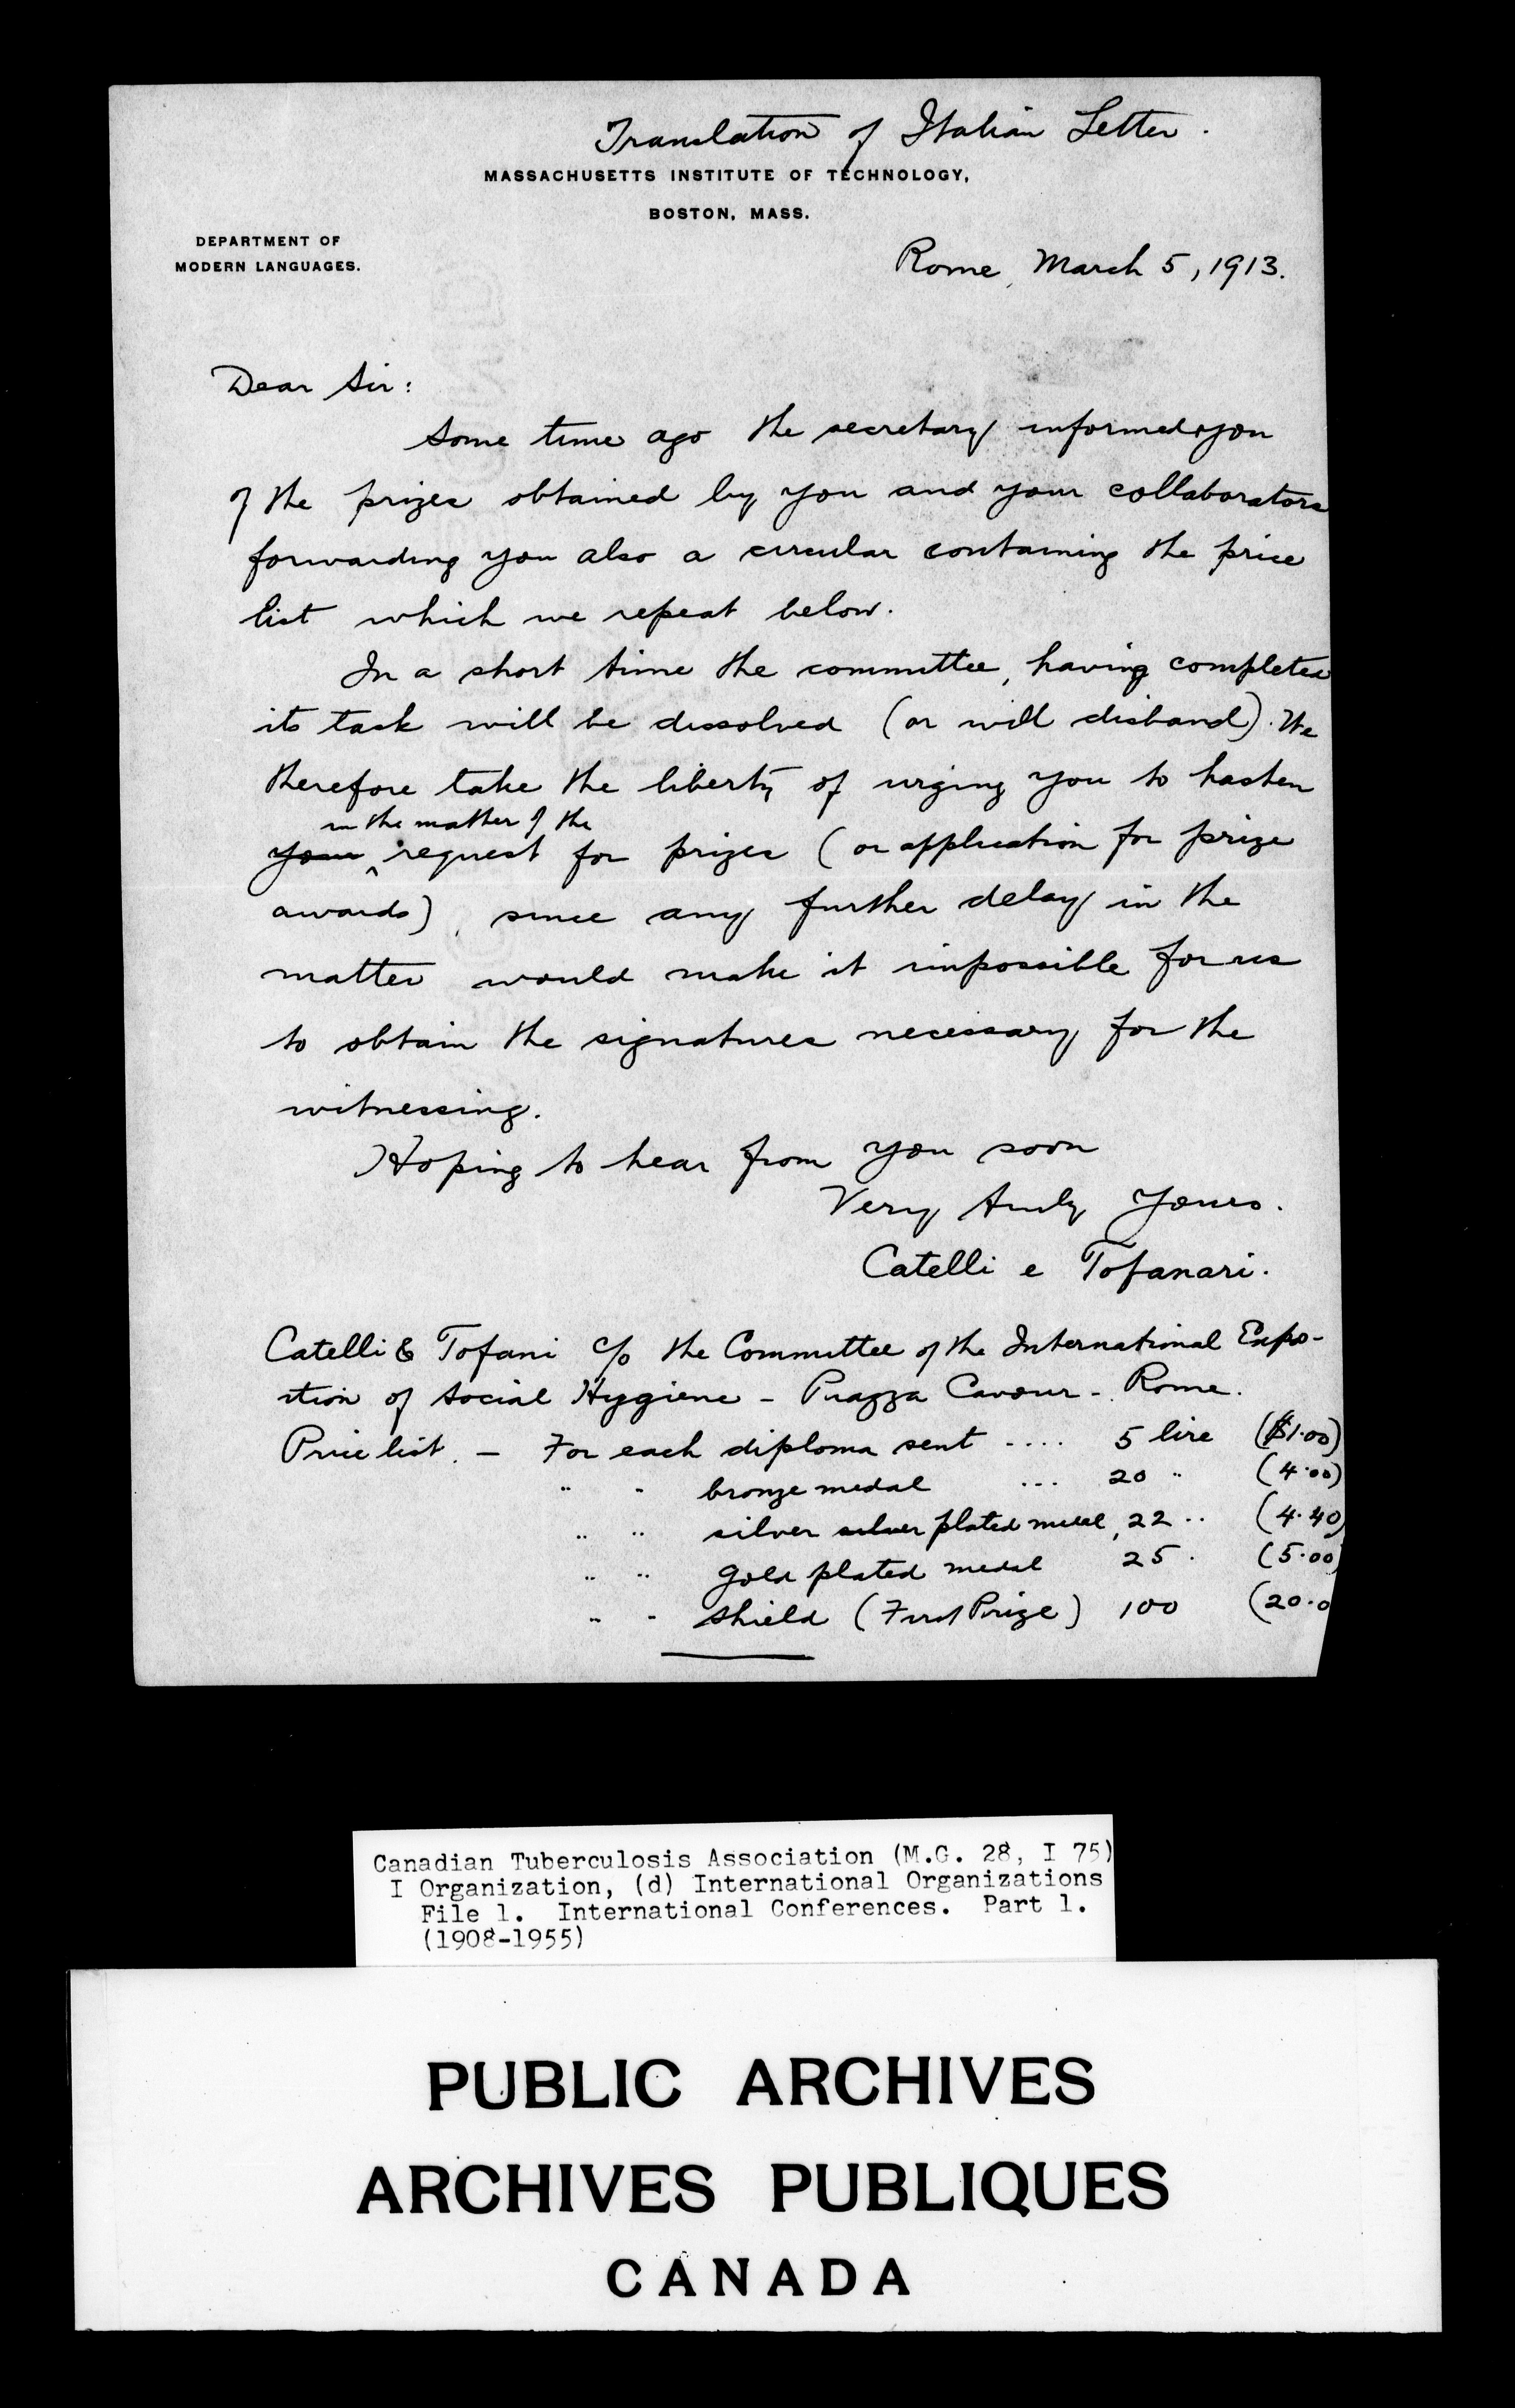 Translation of Italian Letter.
MASSACHUSETTS INSTITUTE OF TECHNOLOGY,
BOSTON, MASS.
DEPARTMENT OF
MODERN LANGUAGES.
Rome, March 5, 1913.
Dear Sir:
Some time ago the secretary informed you
of the prizes obtained by you and your collaborators
forwarding you also a circular containing the price
list which we repeat below.
In a short time the committee, having completed
its task will be dissolved (or will disband). We
therefore take the liberty of urging you to hasten
in the matter of the
your ^ request for prizes (or application for prize
awards), since any further delay in the
matter would make it impossible for us
to obtain the signatures necessary for the
witnessing.
Hoping to hear from you soon
Very truly yours.
Catelli e Tofanari.
Catelli & Tofani c/o the Committee of the International Expo-
ition of Social Hygiene - Piazza Cavour - Rome.
Price list. - For each diploma sent .... 5 lire ($1.00)
" " bronze medal ... 20 " (4.00)
" " silver silver plated medal, 22 " (4.40)
" " gold plated medal 25 " (5.00)
" " shield (First Prize) 100 (20.0
Canadian Tuberculosis Association (M.G. 28, I 75)
I Organization, (d) International Organizations
File 1. International Conferences. Part 1.
(1908-1955)
PUBLIC ARCHIVES
ARCHIVES PUBLIQUES
CANADA